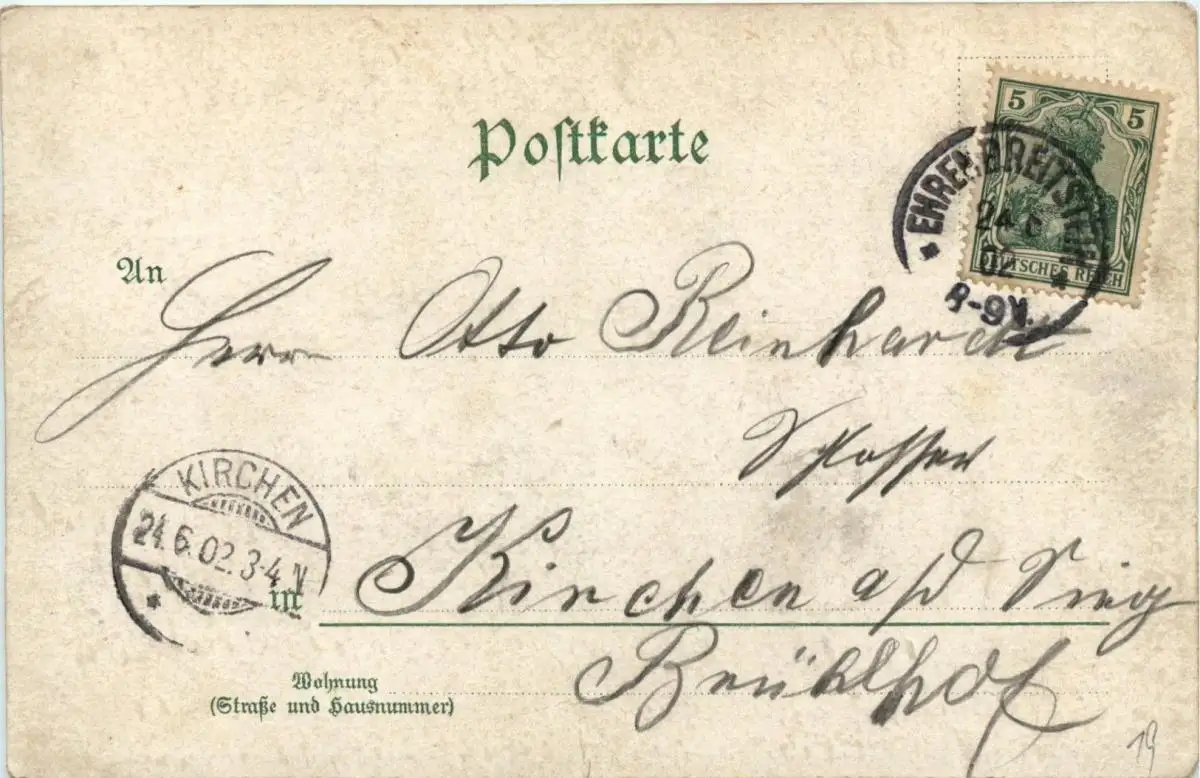 Postkarte
5 5
DEUTSCHES REICH
EHRENBREITSTEIN
24 6
02
8-9V.
An
Herrn Otto Reinhardt
Schlosser
KIRCHEN
24.6.02.3-4N
in Kirchen a/d Sieg
Brühlhof
Wohnung
(Straße und Hausnummer)
19